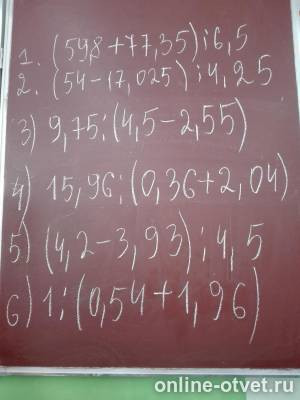 1. (59,8+77,35):6,5
2. (54-17,025):4,25
3) 9,75:(4,5-2,55)
4) 15,96:(0,36+2,04)
5) (4,2-3,93):4,5
6) 1:(0,54+1,96)
online-otvet.ru